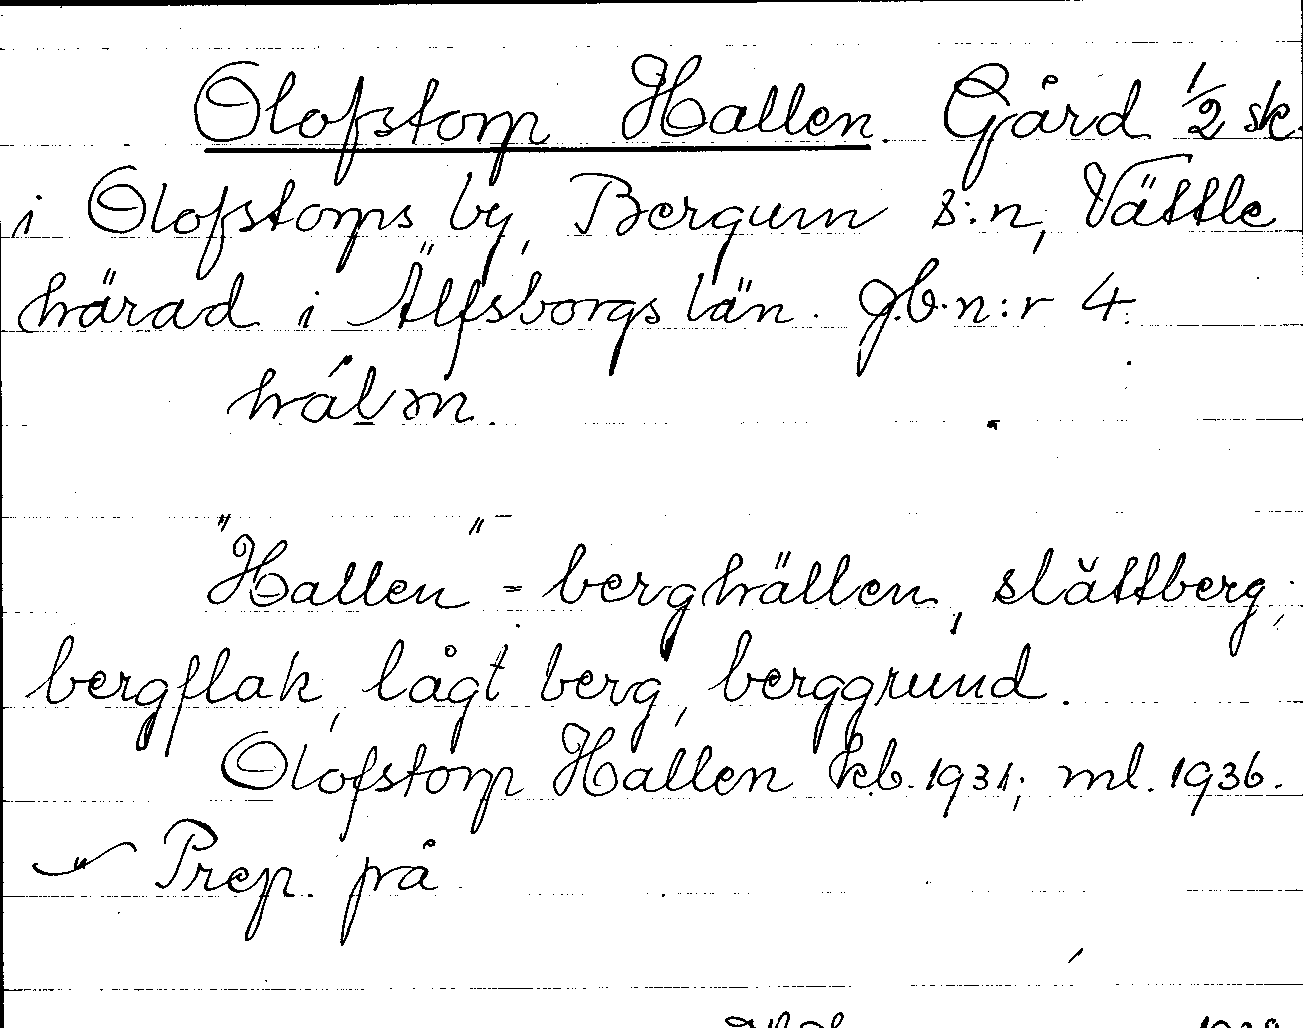 Olofstorp Hallen. Gård 1/2 sk.
i Olofstorps by, Bergum s:n, Vättle
härad i Älfsborgs län. J.b.n:r 4.
"Hallen" - berghällen, slättberg,
bergflak, lågt berg, berggrund.
Olofstorp Hallen kb. 1931; ml. 1936.
Prep. på